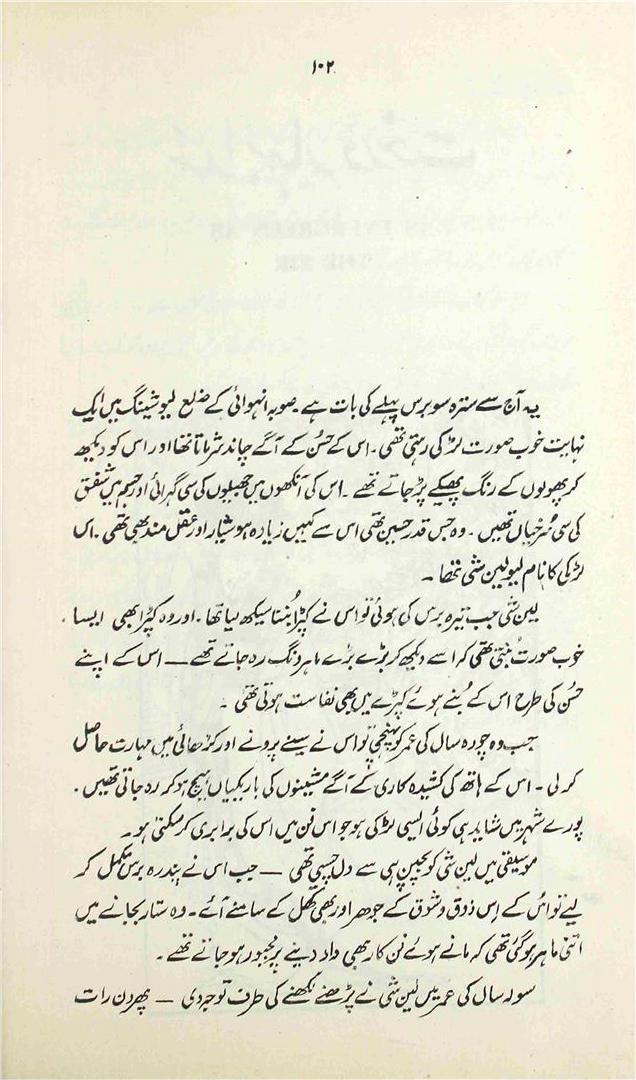 ۱۰۲
یہ آج سے سترہ سو برس پہلے کی بات ہے ۔ صوبہ انہوائی کے ضلع لیو شینگ میں ایک
نہایت خوب صورت لڑکی رہتی تھی ۔ اس کے حسُن کے آگے چاند شرماتا تھا اور اس کو دیکھ
کر پھولوں کے رنگ پھیکے پڑ جاتے تھے ۔ اس کی آنکھوں میں جھیلوں کی سی گہرائی اور جسم میں شفق
کی سی سُرخیاں تھیں ۔ وہ جس قدر حسین تھی اس سے کہیں زیادہ ہوشیار اور عقل مند بھی تھی ۔ اس
لڑکی کا نام لیو لین شی تھا ۔
لین شی جب تیرہ برس کی ہوئی تو اس نے کپڑا بُننا سیکھ لیا تھا ۔ اور وہ کپڑا بھی ایسا
خوب صورت بُنتی تھی کہ اسے دیکھ کر بڑے بڑے ماہر دنگ رہ جاتے تھے — اس کے اپنے
حسُن کی طرح اس کے بُنے ہوئے کپڑے میں بھی نفاست ہوتی تھی ۔
جب وہ چودہ سال کی عمر کو پہنچی تو اس نے سینے پرونے اور کڑھائی میں مہارت حاصل
کر لی ۔ اس کے ہاتھ کی کشیدہ کاری کے آگے مشینوں کی باریکیاں ہیچ ہو کر رہ جاتی تھیں ۔
پورے شہر میں شاید ہی کوئی ایسی لڑکی ہو جو اس فن میں اس کی برابری کر سکتی ہو ۔
موسیقی میں لین شی کو بچپن ہی سے دل چسپی تھی — جب اس نے پندرہ برس مکمل کر
لیے تو اُس کے اِس ذوق و شوق کے جوہر اور بھی کھل کے سامنے آئے ۔ وہ ستار بجانے میں
اتنی ماہر ہو گئی تھی کہ مانے ہوئے فن کار بھی داد دینے پر مجبور ہو جاتے تھے ۔
سولہ سال کی عمر میں لین شی نے پڑھنے لکھنے کی طرف توجہ دی — پھر دن رات